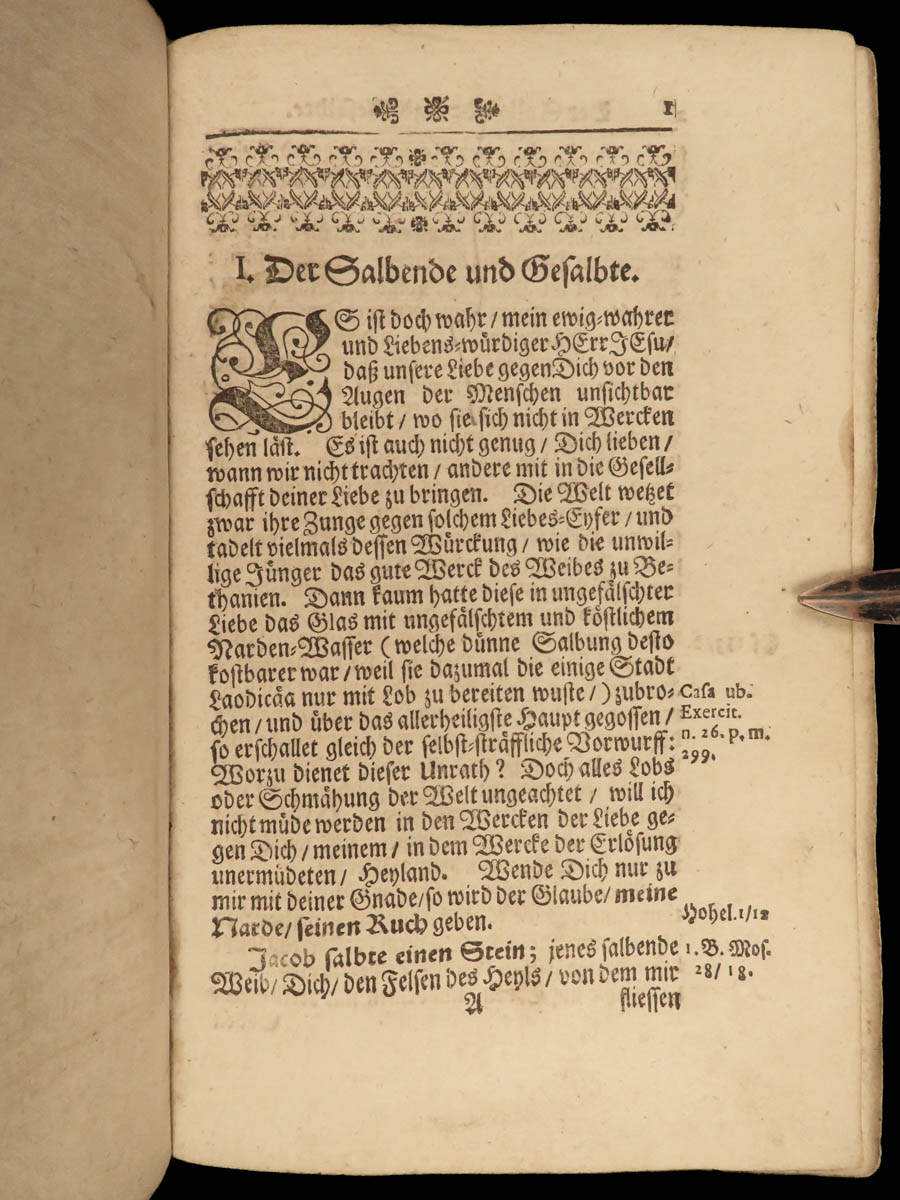 1
I. Der Salbende und Gesalbte.
ES ist doch wahr / mein ewig-wahrer
und Liebens-würdiger HErr JEsu/
daß unsere Liebe gegen Dich vor den
Augen der Menschen unsichtbar
bleibt / wo sie sich nicht in Wercken
sehen läst. Es ist auch nicht genug / Dich lieben /
wann wir nicht trachten / andere mit in die Gesell-
schafft deiner Liebe zu bringen. Die Welt wetzet
zwar ihre Zunge gegen solchem Liebes-Eyfer / und
tadelt vielmals dessen Würckung / wie die unwil-
lige Jünger das gute Werck des Weibes zu Be-
thanien. Dann kaum hatte diese in ungefälschter
Liebe das Glas mit ungefälschtem und köstlichem
Narden-Wasser ( welche dünne Salbung desto
kostbarer war / weil sie dazumal die einige Stadt
Laodicäa nur mit Lob zu bereiten wuste / ) zubro-
chen / und über das allerheiligste Haupt gegossen /
so erschallet gleich der selbst-sträffliche Vorwurff:
Worzu dienet dieser Unrath? Doch alles Lobs
oder Schmähung der Welt ungeachtet / will ich
nicht müde werden in den Wercken der Liebe ge-
gen Dich / meinem / in dem Wercke der Erlösung
unermüdeten / Heyland. Wende Dich nur zu
mir mit deiner Gnade/ so wird der Glaube/ meine
Narde/ seinen Ruch geben.
Jacob salbte einen Stein; jenes salbende
Weib/ Dich/ den Felsen des Heyls / von dem mir
A fliessen
Casa ub.
Exercit.
n. 26. p. m.
299.
Hohel. 1/12
1. B. Mos.
28/ 18.